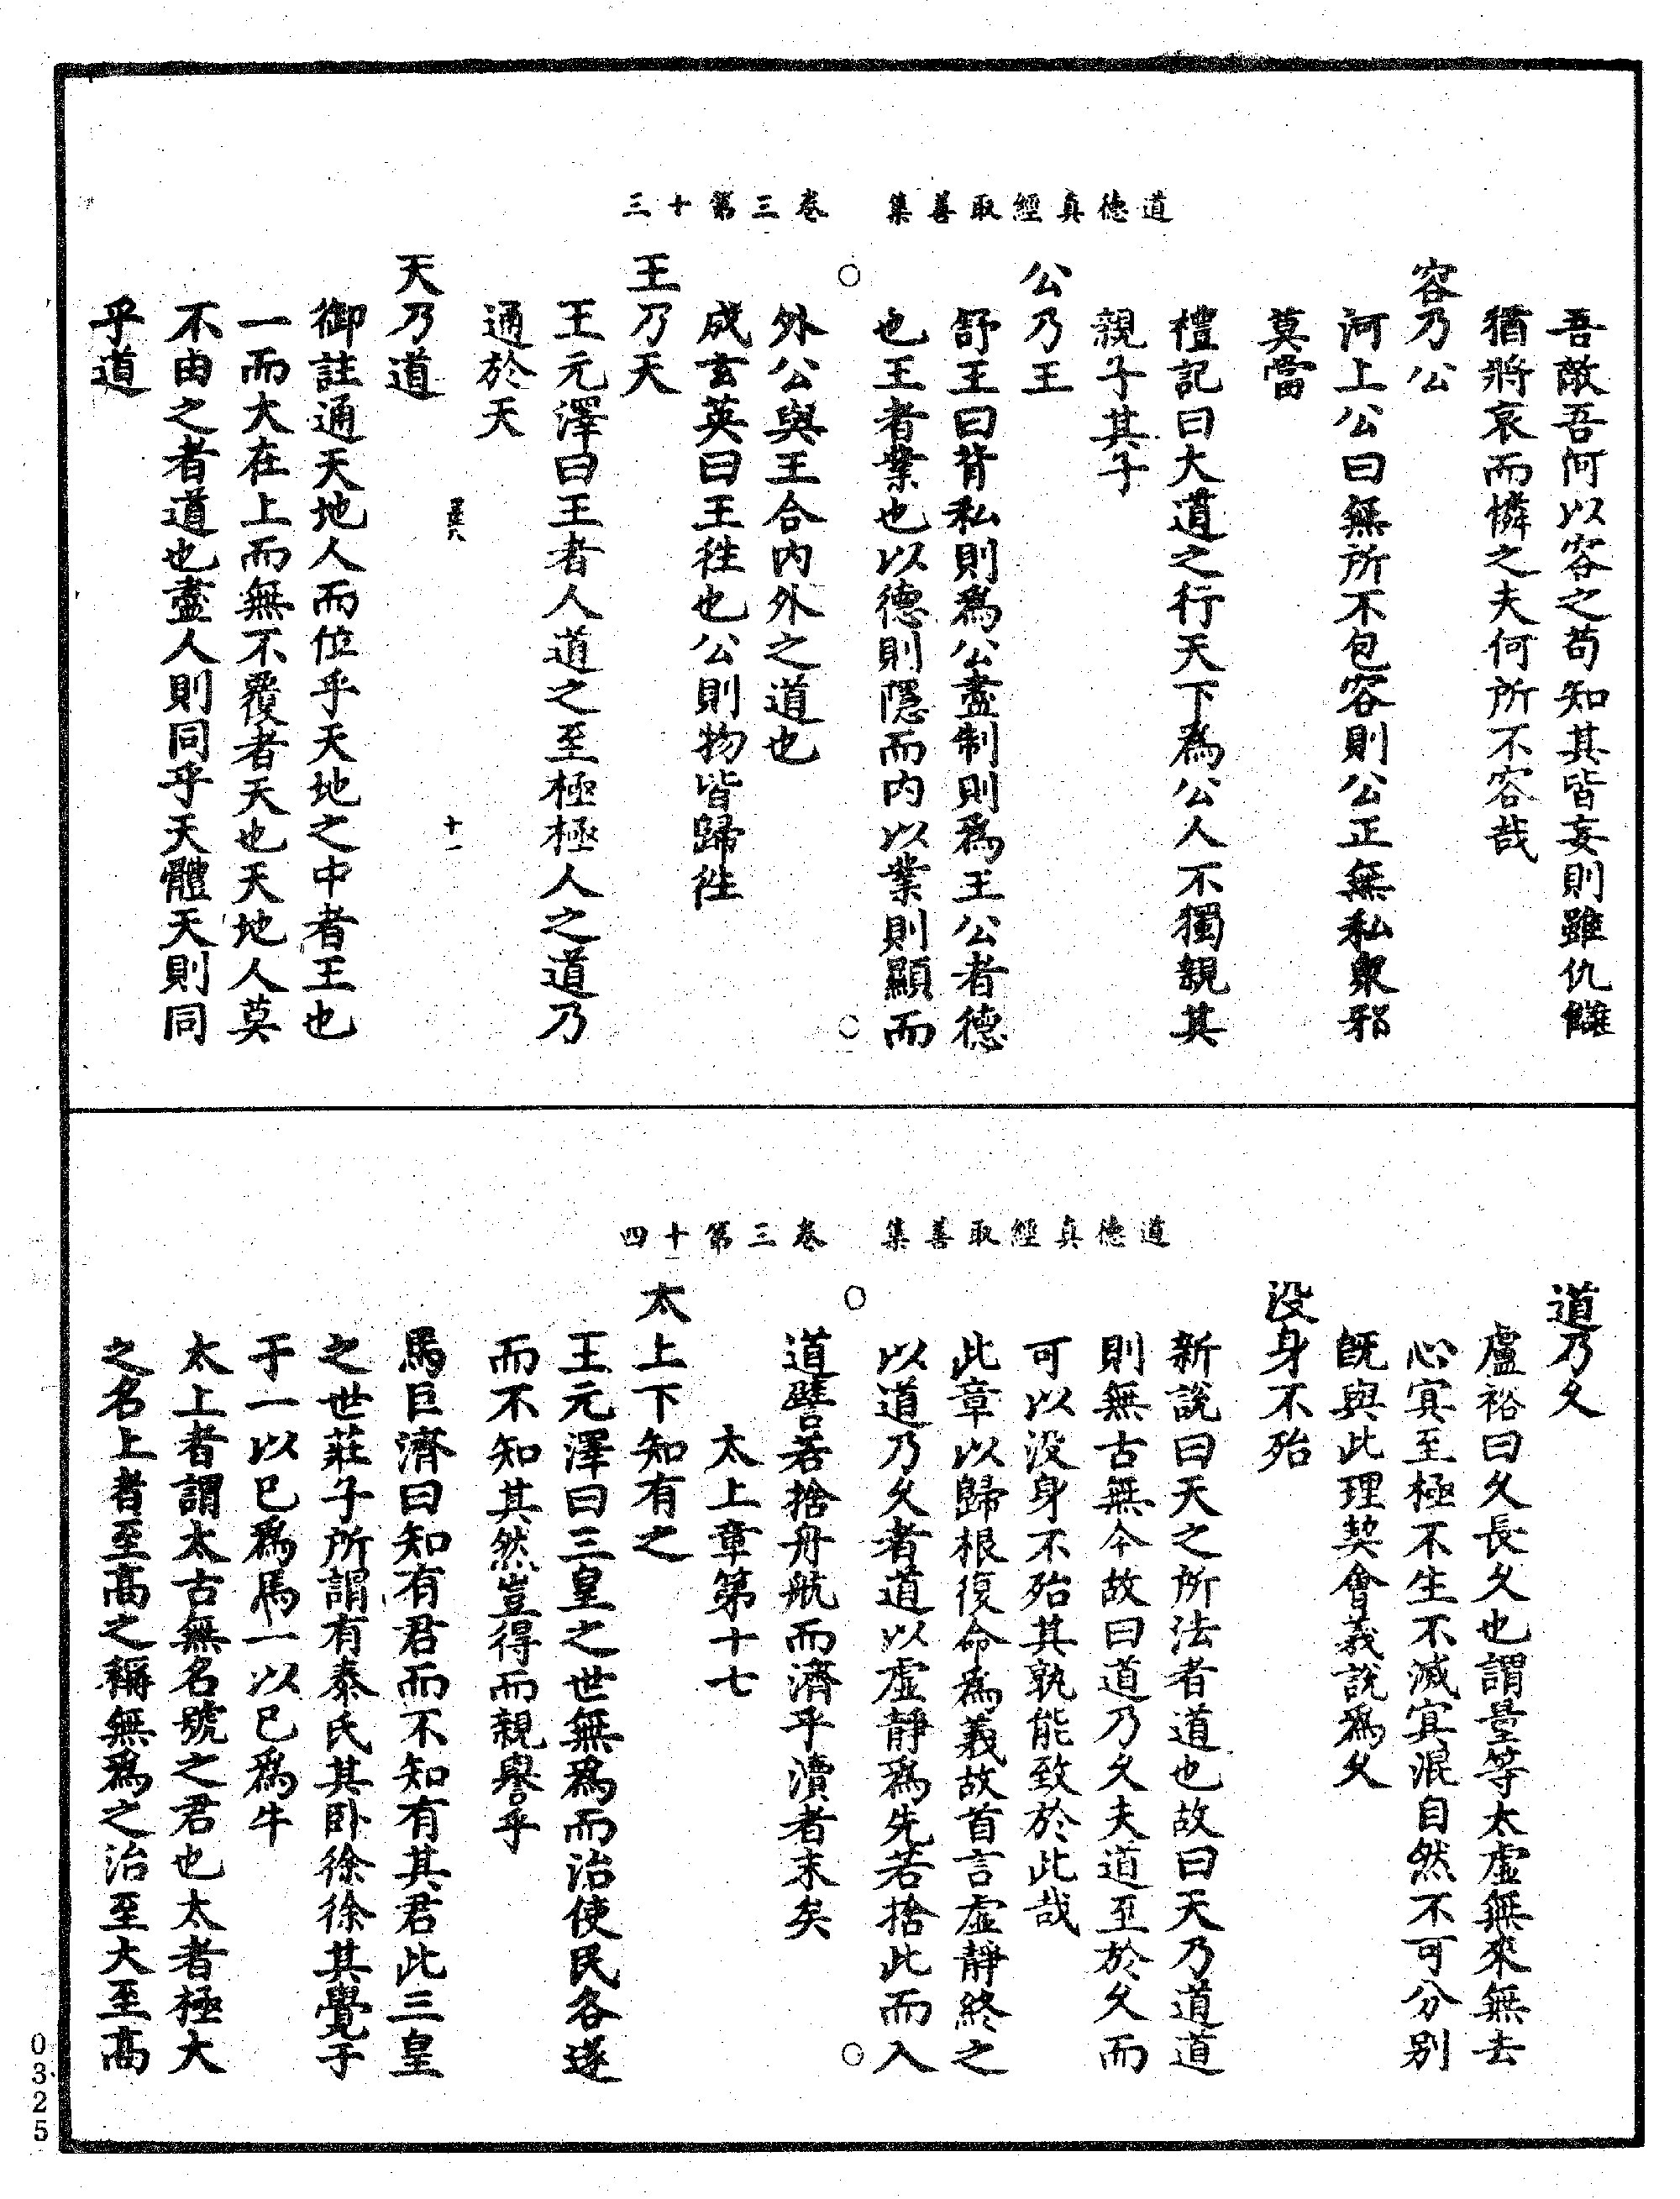 道德真經取善集　卷三第十三
吾敵吾何以容之苟知其皆妄則雖仇讎
猶將哀而憐之夫何所不容哉
容乃公
河上公曰無所不包容則公正無私衆邪
莫當
禮記曰大道之行天下為公人不獨親其
親子其子
公乃王
舒王曰背私則爲公盡制則爲王公者德
也王者業也以德則隱而內以業則顯而
外公與王合內外之道也
成玄英曰王徃也公則物皆歸徃
王乃天
王元澤曰王者人道之至極極人之道乃
通於天
十一
天乃道
御註通天地人而位乎天地之中者王也
一而大在上而無不覆者天也天地人莫
不由之者道也盡人則同乎天體天則同
乎道
道德真經取善集　卷三第十四
道乃久
盧裕曰久長久也謂量等太虛無來無去
心寘至極不生不滅寘混自然不可分別
旣與此理契會義說爲久
没身不殆
新說曰天之所法者道也故曰天乃道道
則無古無今故曰道乃久夫道至於久而
可以没身不殆其孰能致於此哉
此章以歸根復命為義故首言虛靜終之
以道乃久者道以虛靜爲先若捨此而入
道譬若捨舟航而濟乎瀆者末矣
太上章第十七
太上下知有之
王元澤曰三皇之世無爲而治使民各遂
而不知其然豈得而親譽乎
馬巨濟曰知有君而不知有其君此三皇
之世莊子所謂有泰氏其卧徐徐其覺于
于一以已爲馬一以已爲牛
太上者謂太古無名號之君也太者極大
之名上者至高之稱無爲之治至大至高
0325